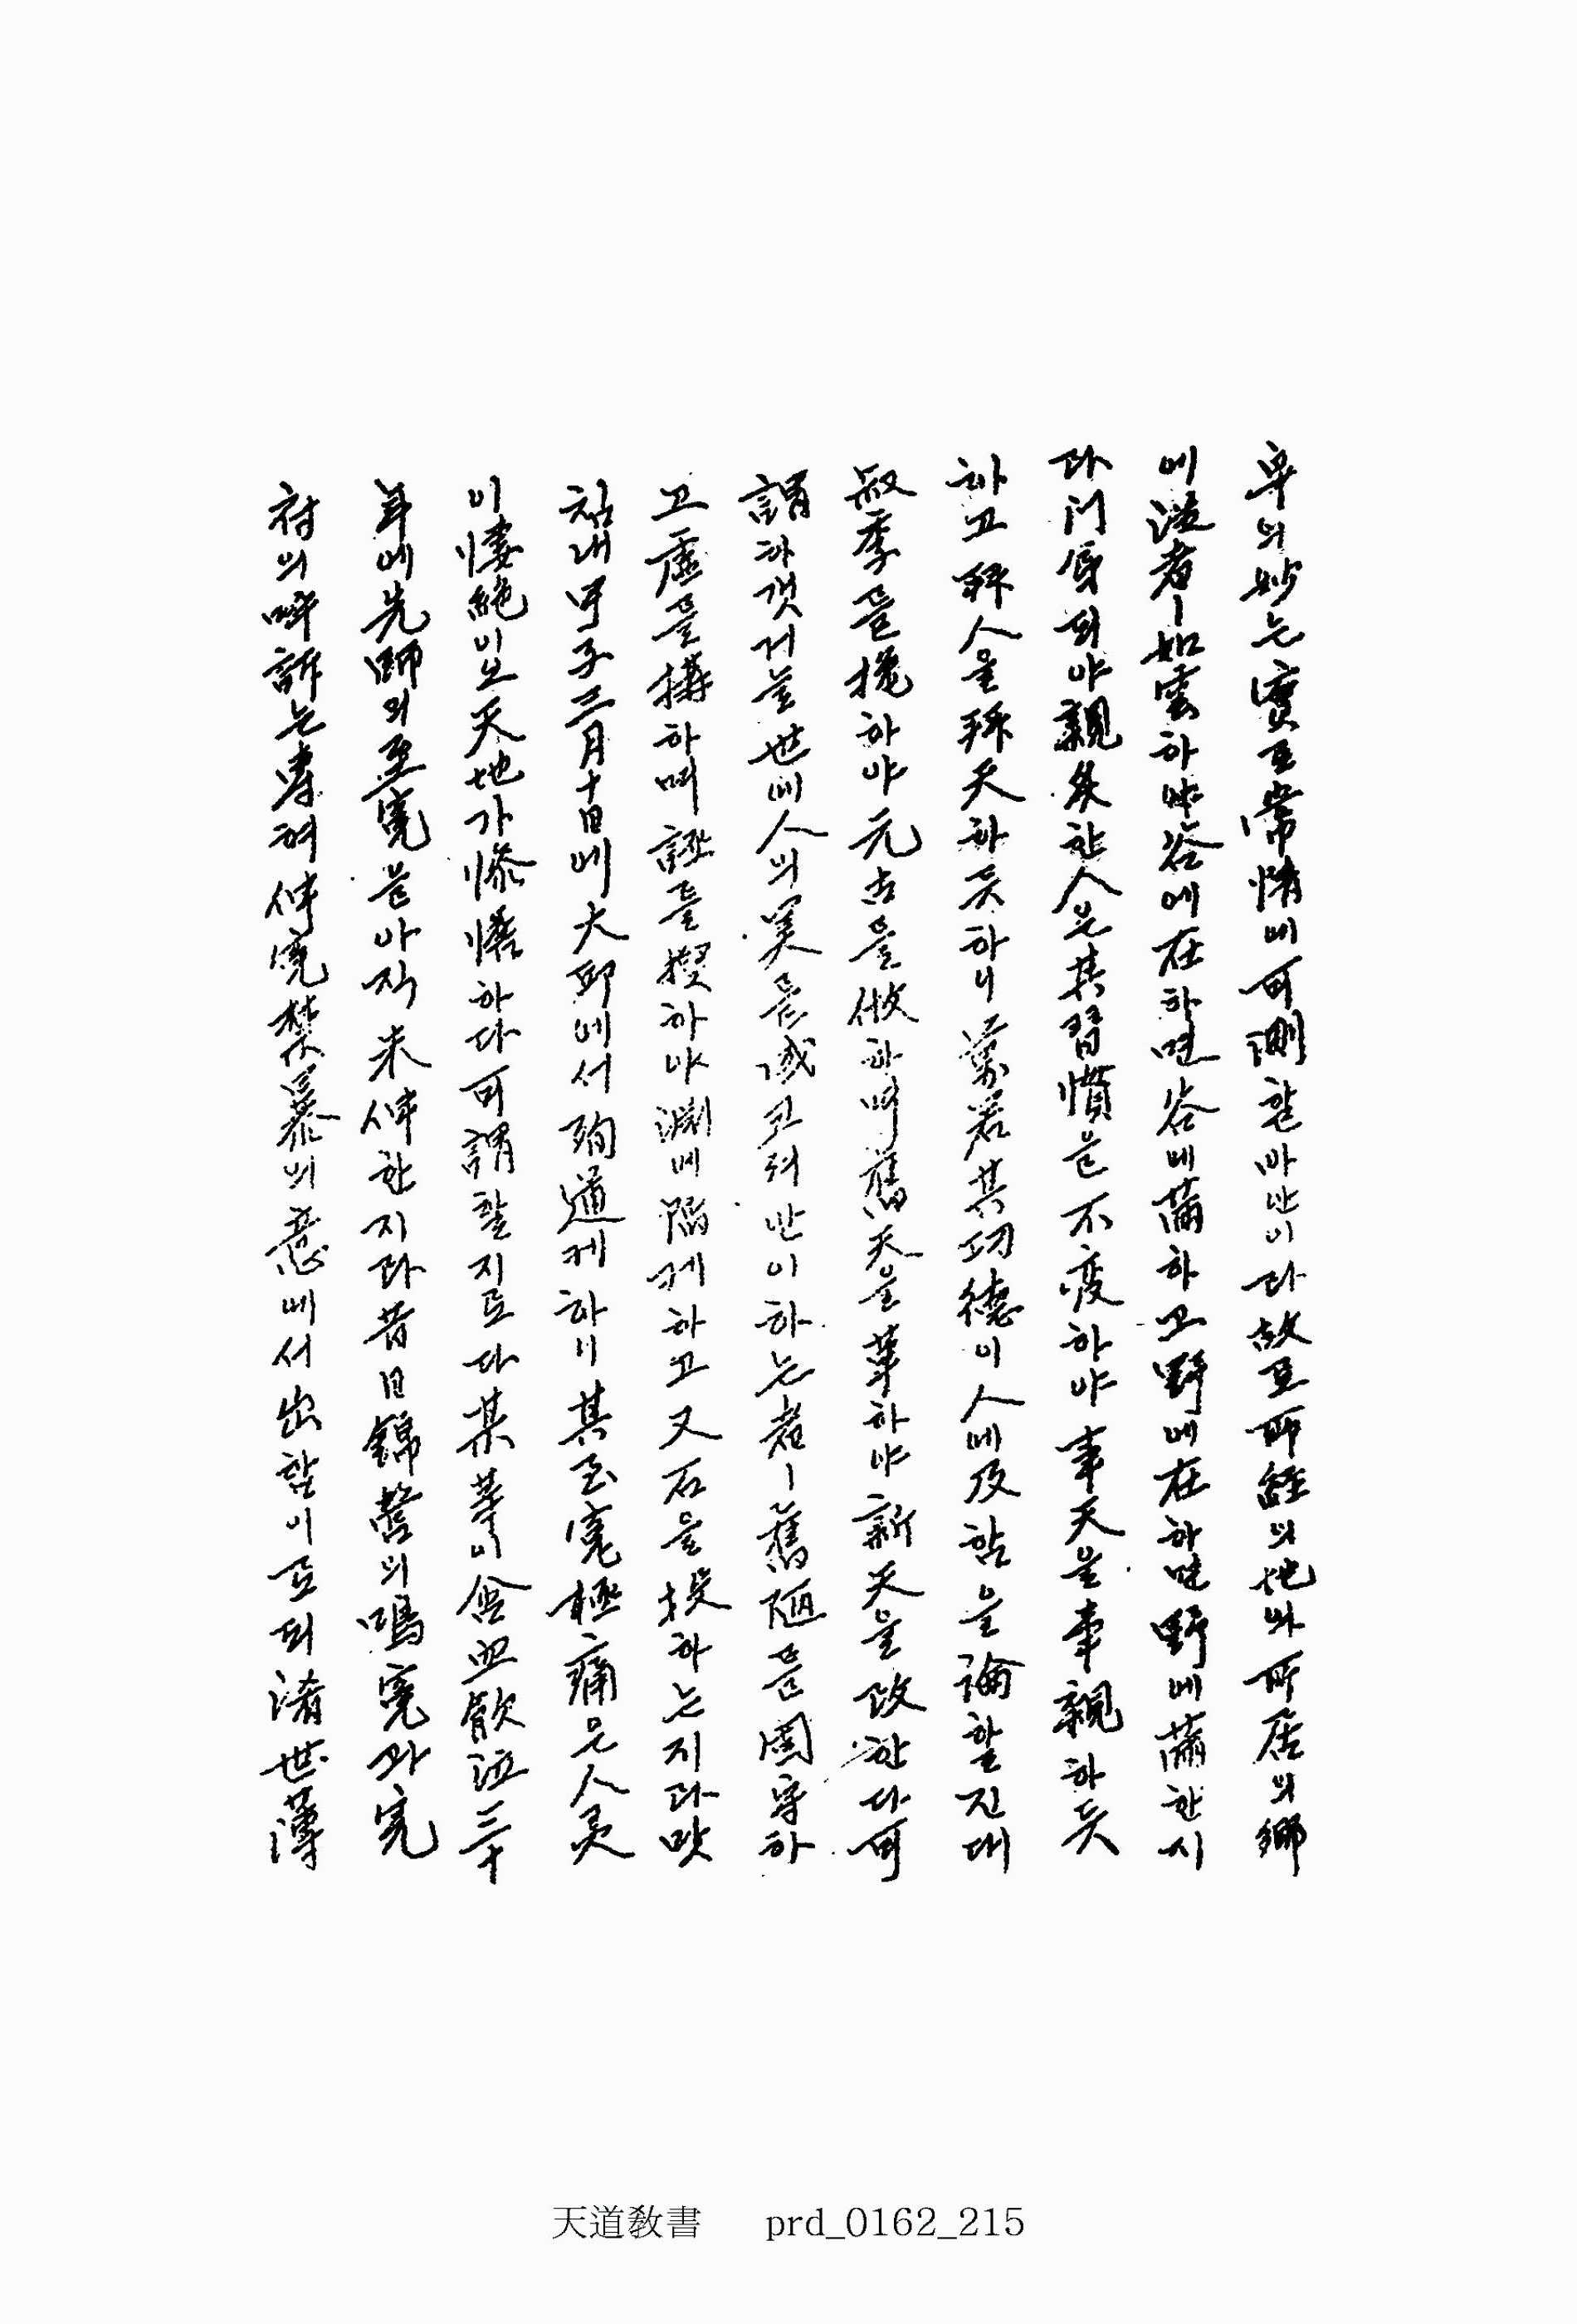 의 妙는 實로 常情에 可測할 바 안이라 故로 所經의 地와 所居의 鄕
에 從者ㅣ 如雲하야 谷에 在하면 谷에 滿하고 野에 在하면 野에 滿한지
라 門屠되야 親炙한 人은 其習慣을 不變하야 事天을 事親하듯
하고 拜人을 拜天하듯하니 萬若 其功德이 人에 及함을 論할진대
叔季를 挽하야 元古을 倣하며 舊天을 革하야 新天을 改한다 可
謂하겟거늘 世에 人의 美를 成코져 안이하는 者ㅣ 舊陋를 固守하
고 虛를 構하며 誣를 捏하야 淵에 陷케 하고 又 石을 投하는지라 맛
참내 甲子三月十日에 大邱에서 殉道케 하니 其至寃極痛은 人灵
이 悽絶이오 天地가 慘憺하다 可謂할지로다 某等이 含血飮泣三十
年에 先師의 至寃을 아직 未伸한지라 昔日 錦營의 鳴寃과 完
府의 呼訴는 專혀 伸寃禁暴의 意에서 出함이로되 淆世薄
天道敎書 prd_0162_215